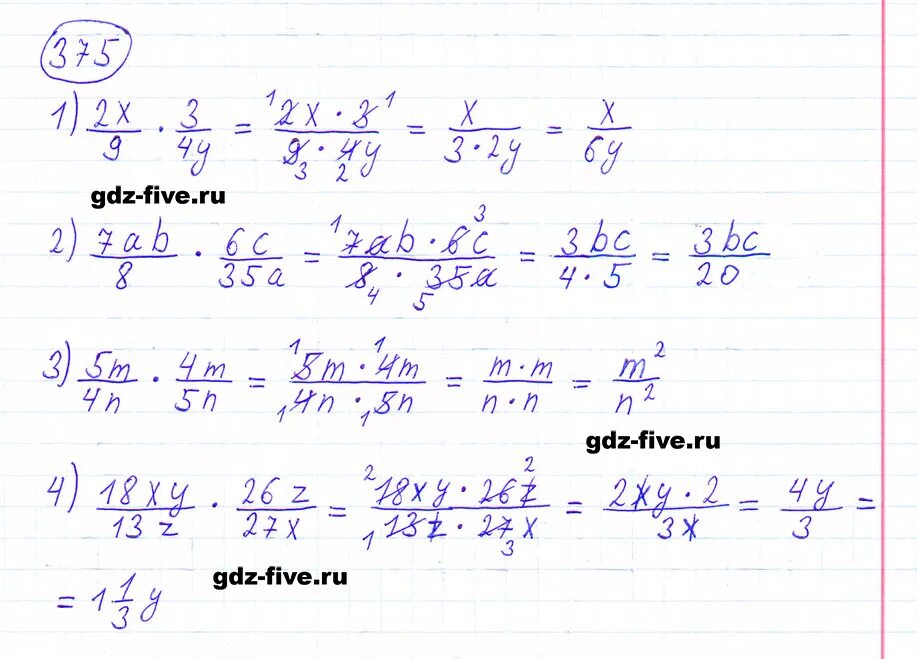 375
1) 2x/9 · 3/4y = 2x · 3/9 · 4y = x/3 · 2y = x/6y
gdz-five.ru
2) 7ab/8 · 6c/35a = 7ab · 6c/8 · 35a = 3bc/4 · 5 = 3bc/20
3) 5m/4n · 4m/5n = 5m · 4m/4n · 5n = m · m/n · n = m²/n²
gdz-five.ru
4) 18xy/13z · 26z/27x = 18xy · 26z/13z · 27x = 2xy · 2/3x = 4y/3 =
= 1 1/3 y
gdz-five.ru